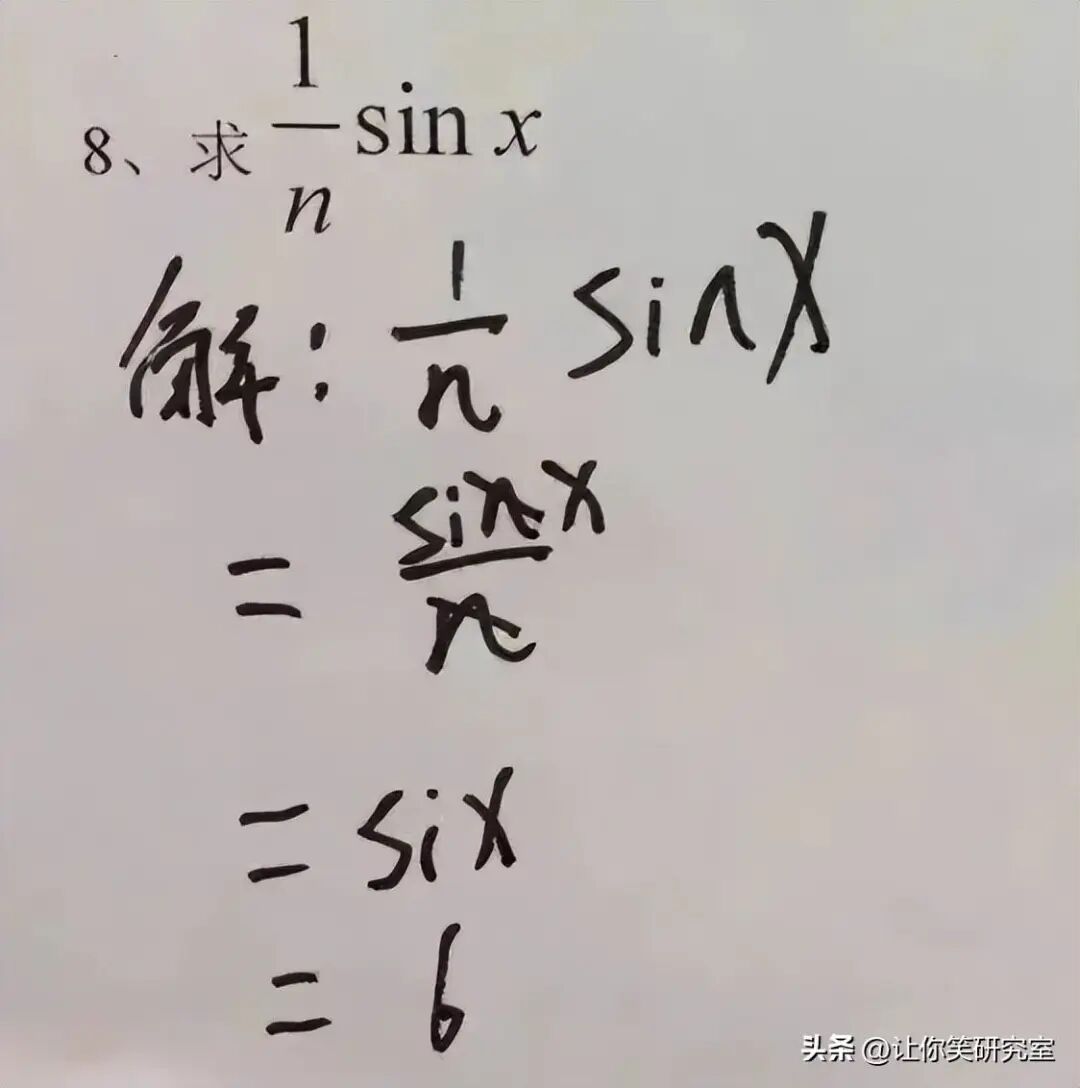 8、求 \frac{1}{n} sin x
解: \frac{1}{n} sinx
= \frac{sinx}{n}
= six
= 6
头条 @让你笑研究室